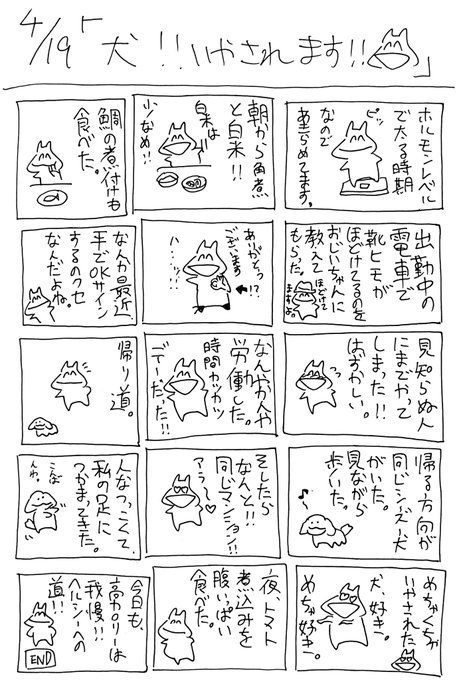 4/19「犬!!いやされます!!」
ホルモンレベル
で太る時期
なので
あきらめてます。
ピッ
朝から角煮
と白米!!
白米は
少なめ!!
鯛の煮付けも
食べた。
出勤中の
電車で
靴ヒモが
ほどけてるのを
おじいちゃんに
教えて
もらった。
ほどけて
ますよ。
ありがとう
ございます
!?
ハ…ッ!!
なんか最近
手でOKサイン
するのクセ
なんだよね。
見知らぬ人
にまでやって
しまった!!
はずかしい。
なんやかんや
労働した。
時間カツカツ
デーだった!!
帰り道。
帰る方向が
同じシーズー犬
がいた。
見ながら
歩いた。
♪
そしたら
なんと!!
同じマンション!!
アラ〜♡
人なつっこくて、
私の足に
つかまってきた。
めちゃくちゃ
いやされた
犬、好き。
めちゃ好き。
夜、トマト
煮込みを
腹いっぱい
食べた。
今日も、
高カロリーは
我慢!!
ヘルシーへの
道!!
END